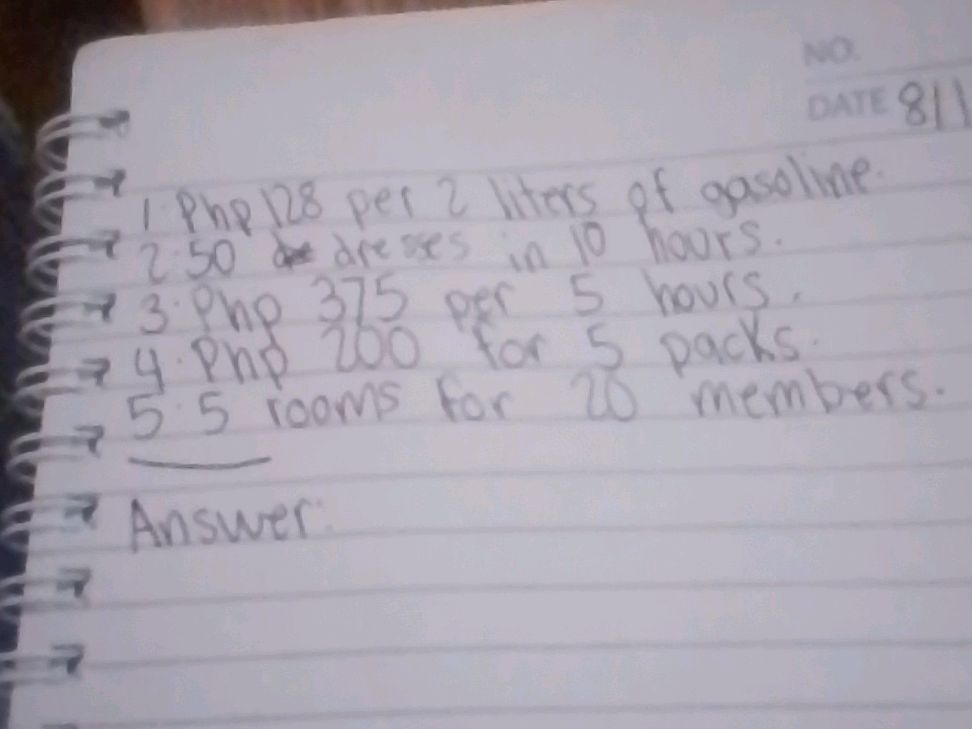 NO.
DATE 8/1
1. Php 128 per 2 liters of gasoline.
2. 50 dresses in 10 hours.
3. Php 375 per 5 hours.
4. Php 200 for 5 packs.
5. 5 rooms for 20 members.
Answer: